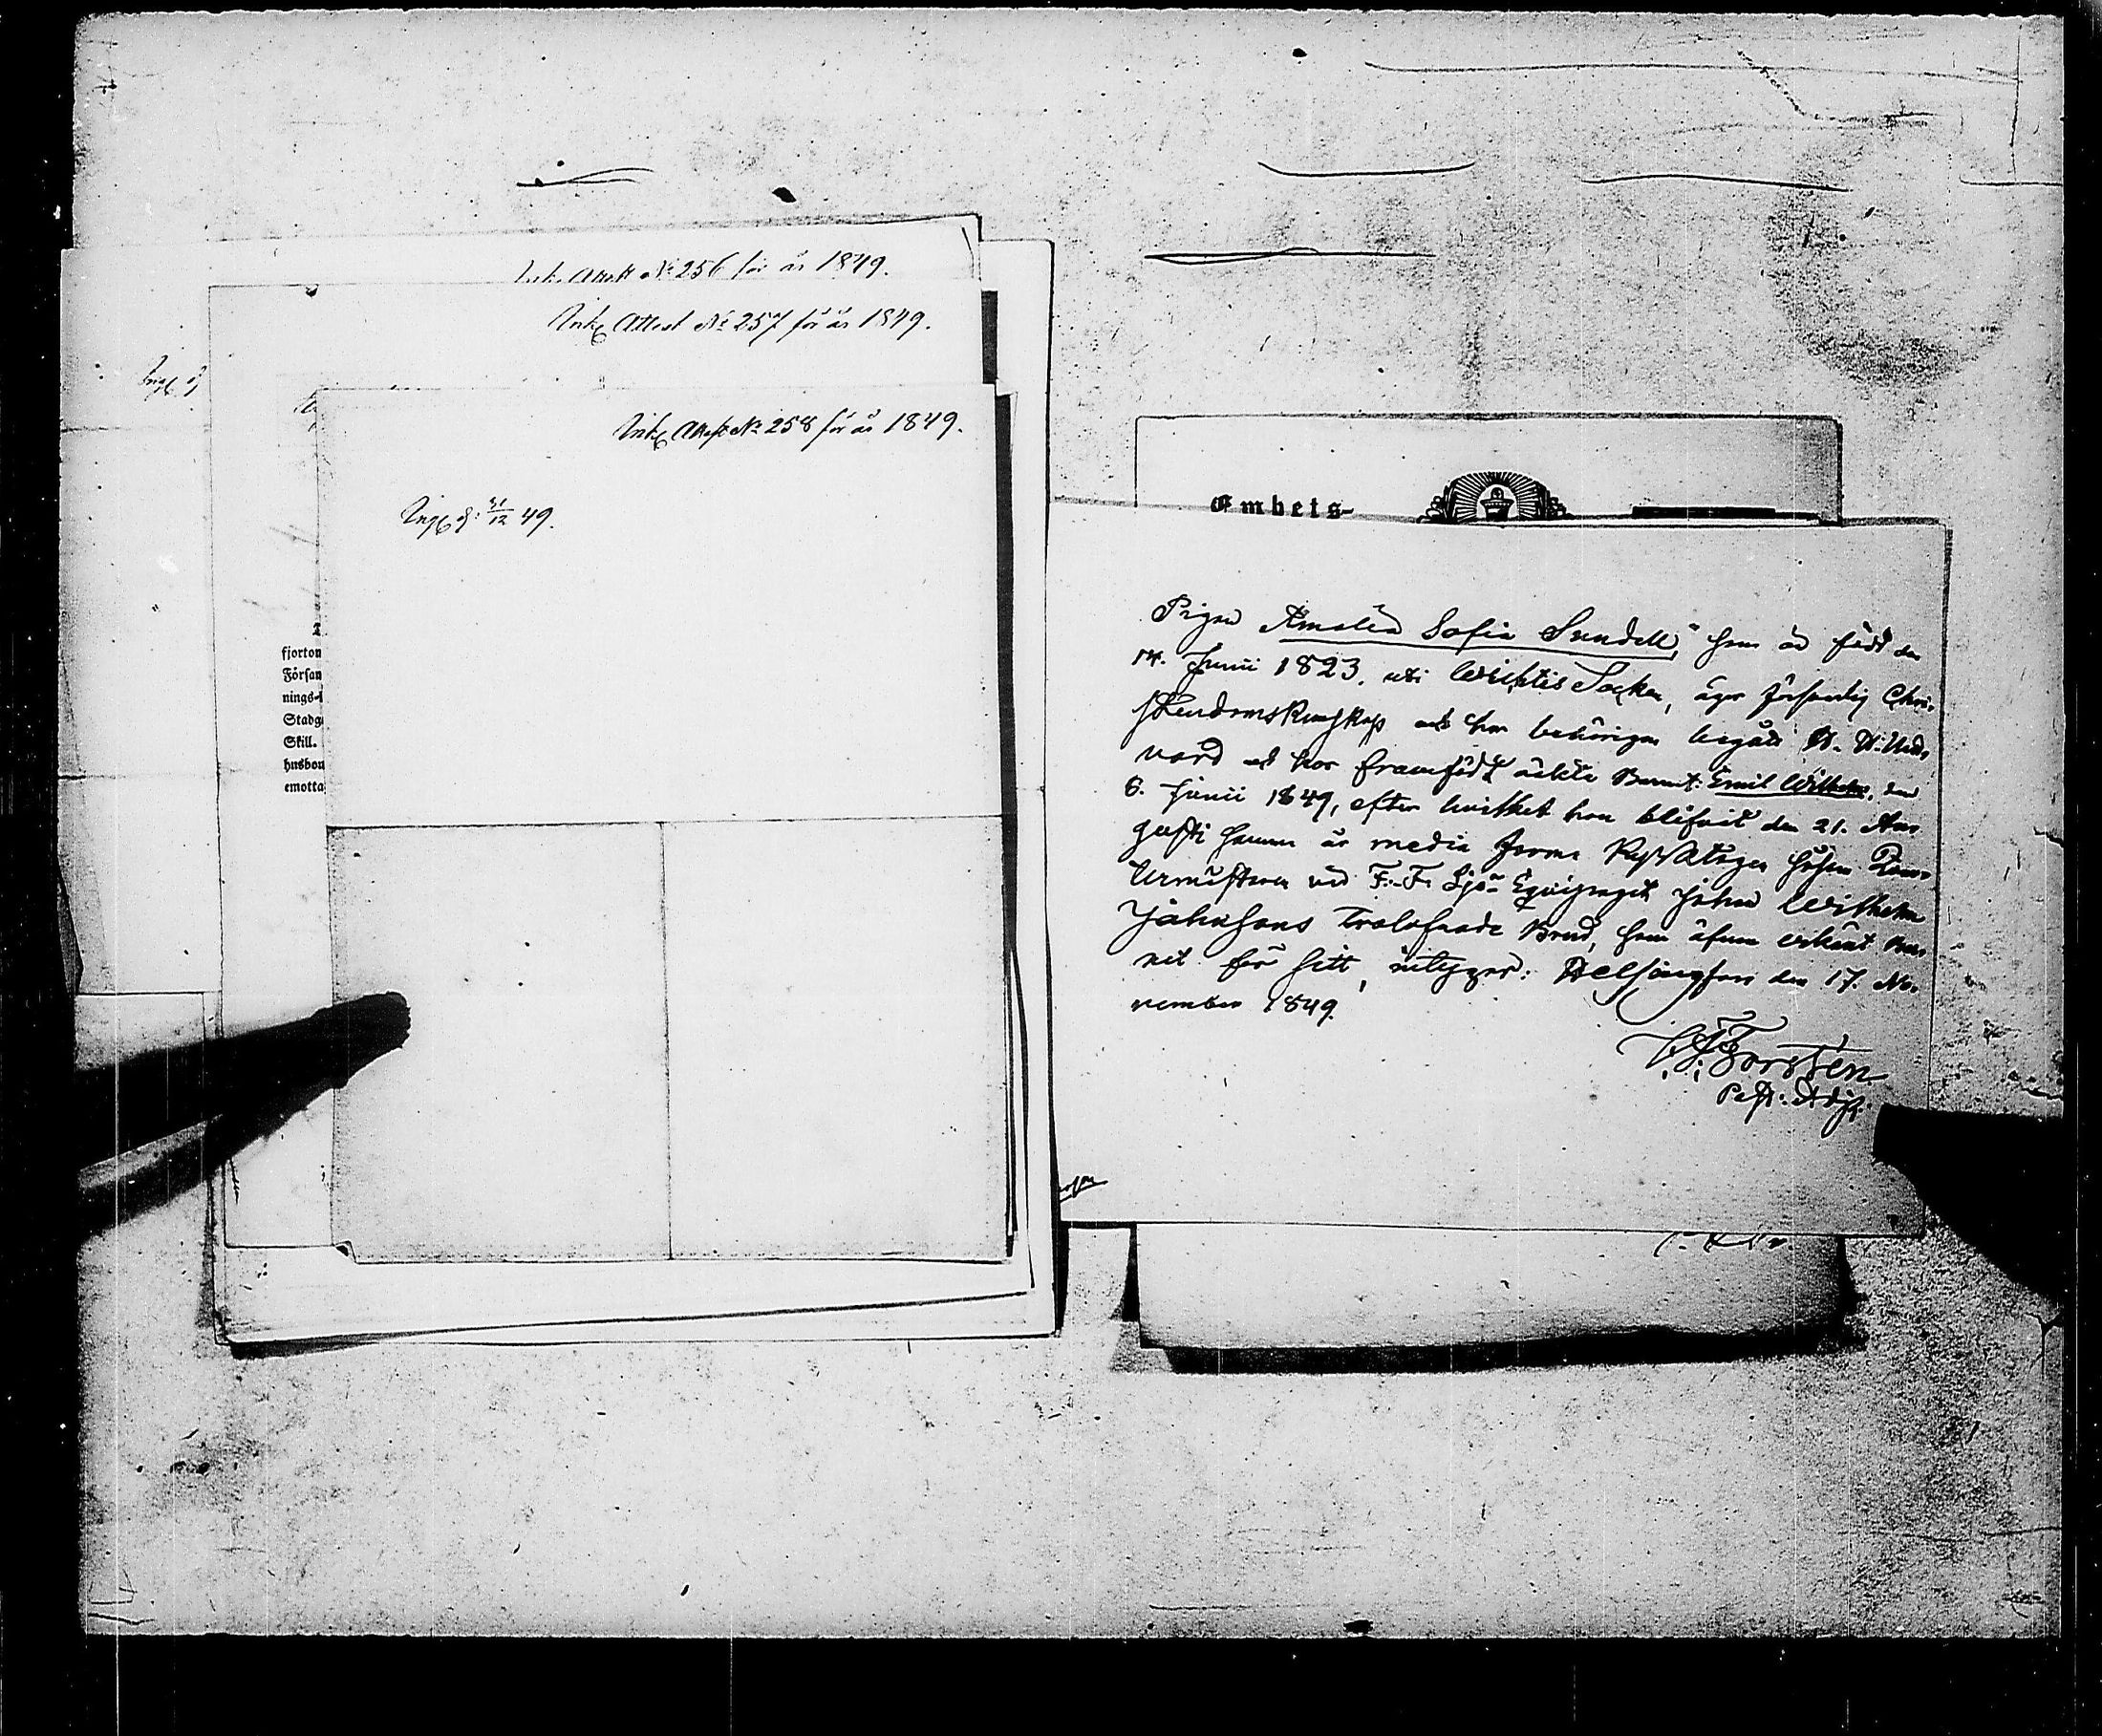 Ink. Attest No 256 för år 1849.
Ink. Attest No 257 för år 1849.
Ink. Attest No 258 för år 1849.
49.
fjorton
Försam
nings-
Stadg
Skill.
husbon
emotta
Embets-
Pigan Amalia Sofia Sundell, som är född den
14. Junii 1823. uti Wichtis Socken, äger försvarlig Chri-
stendomskunskap och har behörigen begått H. H. Natt-
vard och har framfödt äckta Barnet: Emil Wilhelm, den
6. Junii 1849, efter hvilket hon blifvit den 21. Au-
gusti samma år media forma kyrktagen såsom
vid F. F. Sjö-Equipaget Johan Wilhelm
Johnssons trolofvade Brud, som äfven erkänt Bar-
net för sitt, intygar: Helsingfors den 17. No-
vember 1849.
Forstén
Past: Adj: